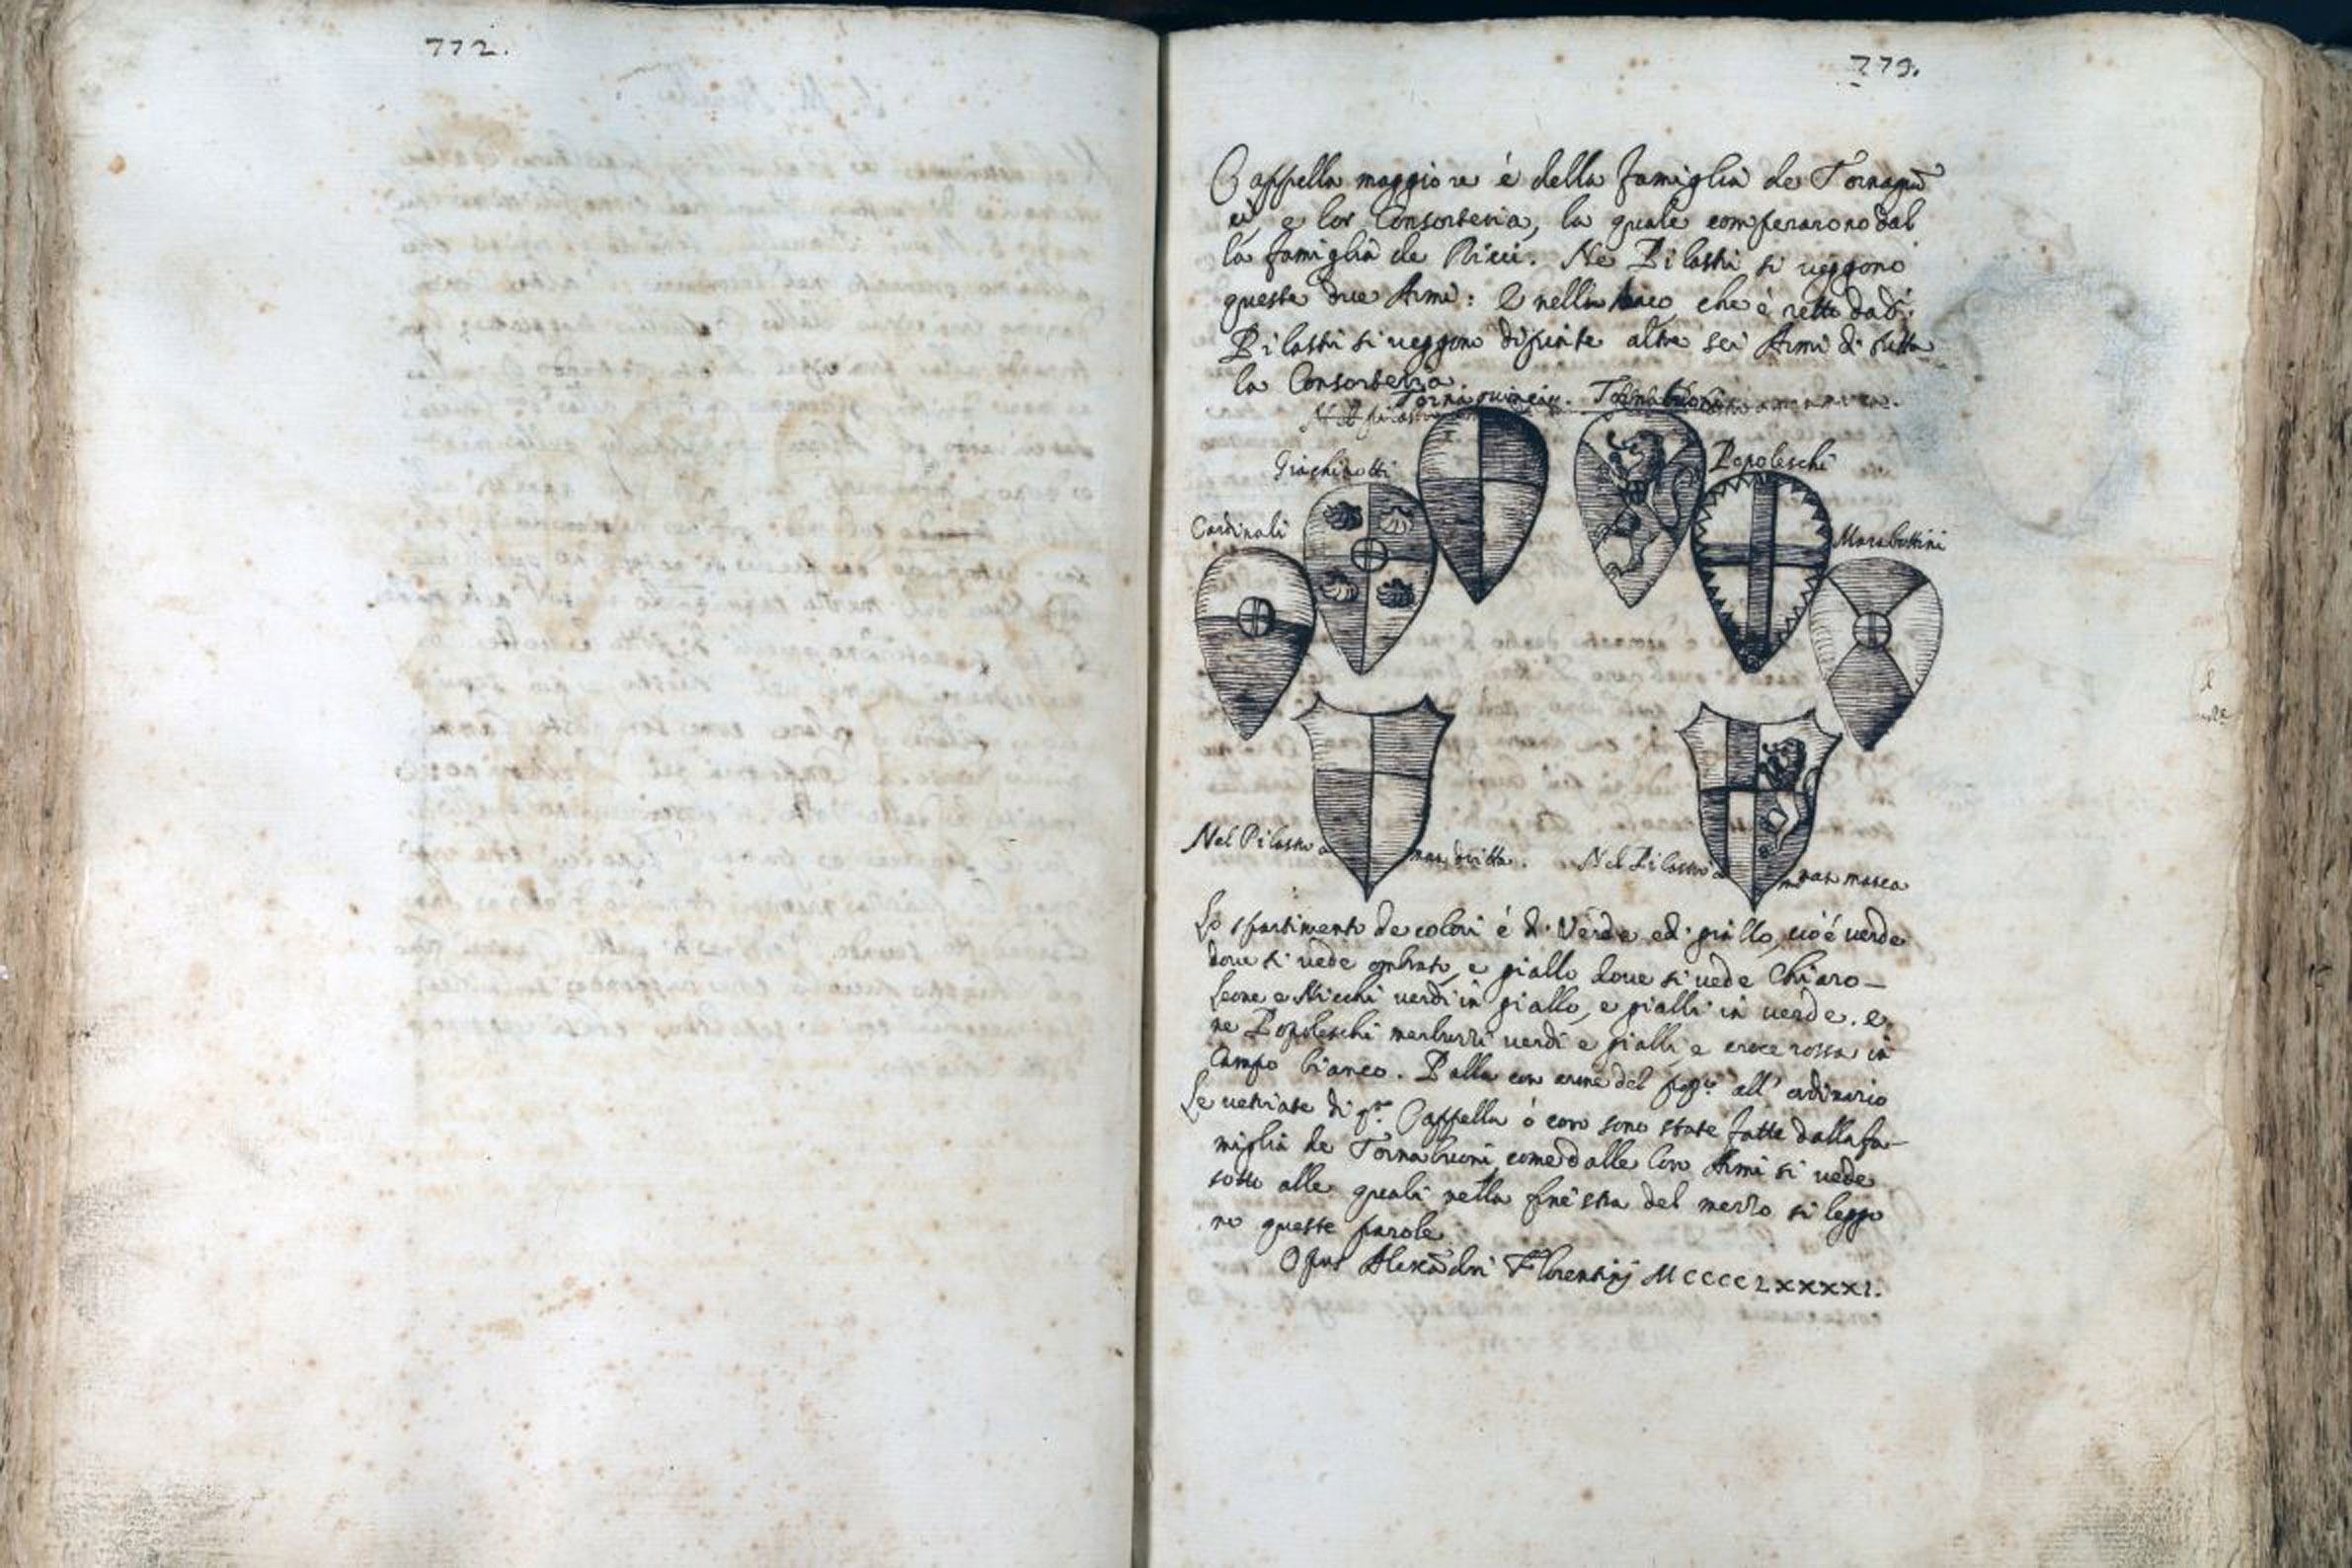 772.
779.
Cappella maggiore è della famiglia de Tornaquin
ci, e lor Consorteria, la quale comperarono dal
la famiglia de Ricci. Ne Pilastri si veggono
queste due Armi: E nell'Arco che è retto da d.i
Pilastri si veggono dipinte altre sei Armi di tutta
la Consorteria.
Tornaquinci. Tornabuoni
Giachinotti
Popoleschi
Cardinali
Marabottini
Nel Pilastro a man dritta.
Nel Pilastro a man manca
Lo spartimento de colori è di Verde e di giallo, cioè verde
dove si vede ombrato, e giallo dove si vede Chiaro—
Leone e Nicchi verdi in giallo, e gialli in verde. e
ne Popoleschi merluzzi verdi e gialli e croce rossa in
Campo bianco. Palla con arme del pop.o all' ordinario
Le vetriate di q.ta Cappella ò coro sono state fatte dalla fa—
miglia de Tornabuoni, come dalle loro Armi si vede
sotto alle quali nella finestra del mezzo si leggo
no queste parole
Opus Alexãdri Florentinj MCCCCLXXXXI.